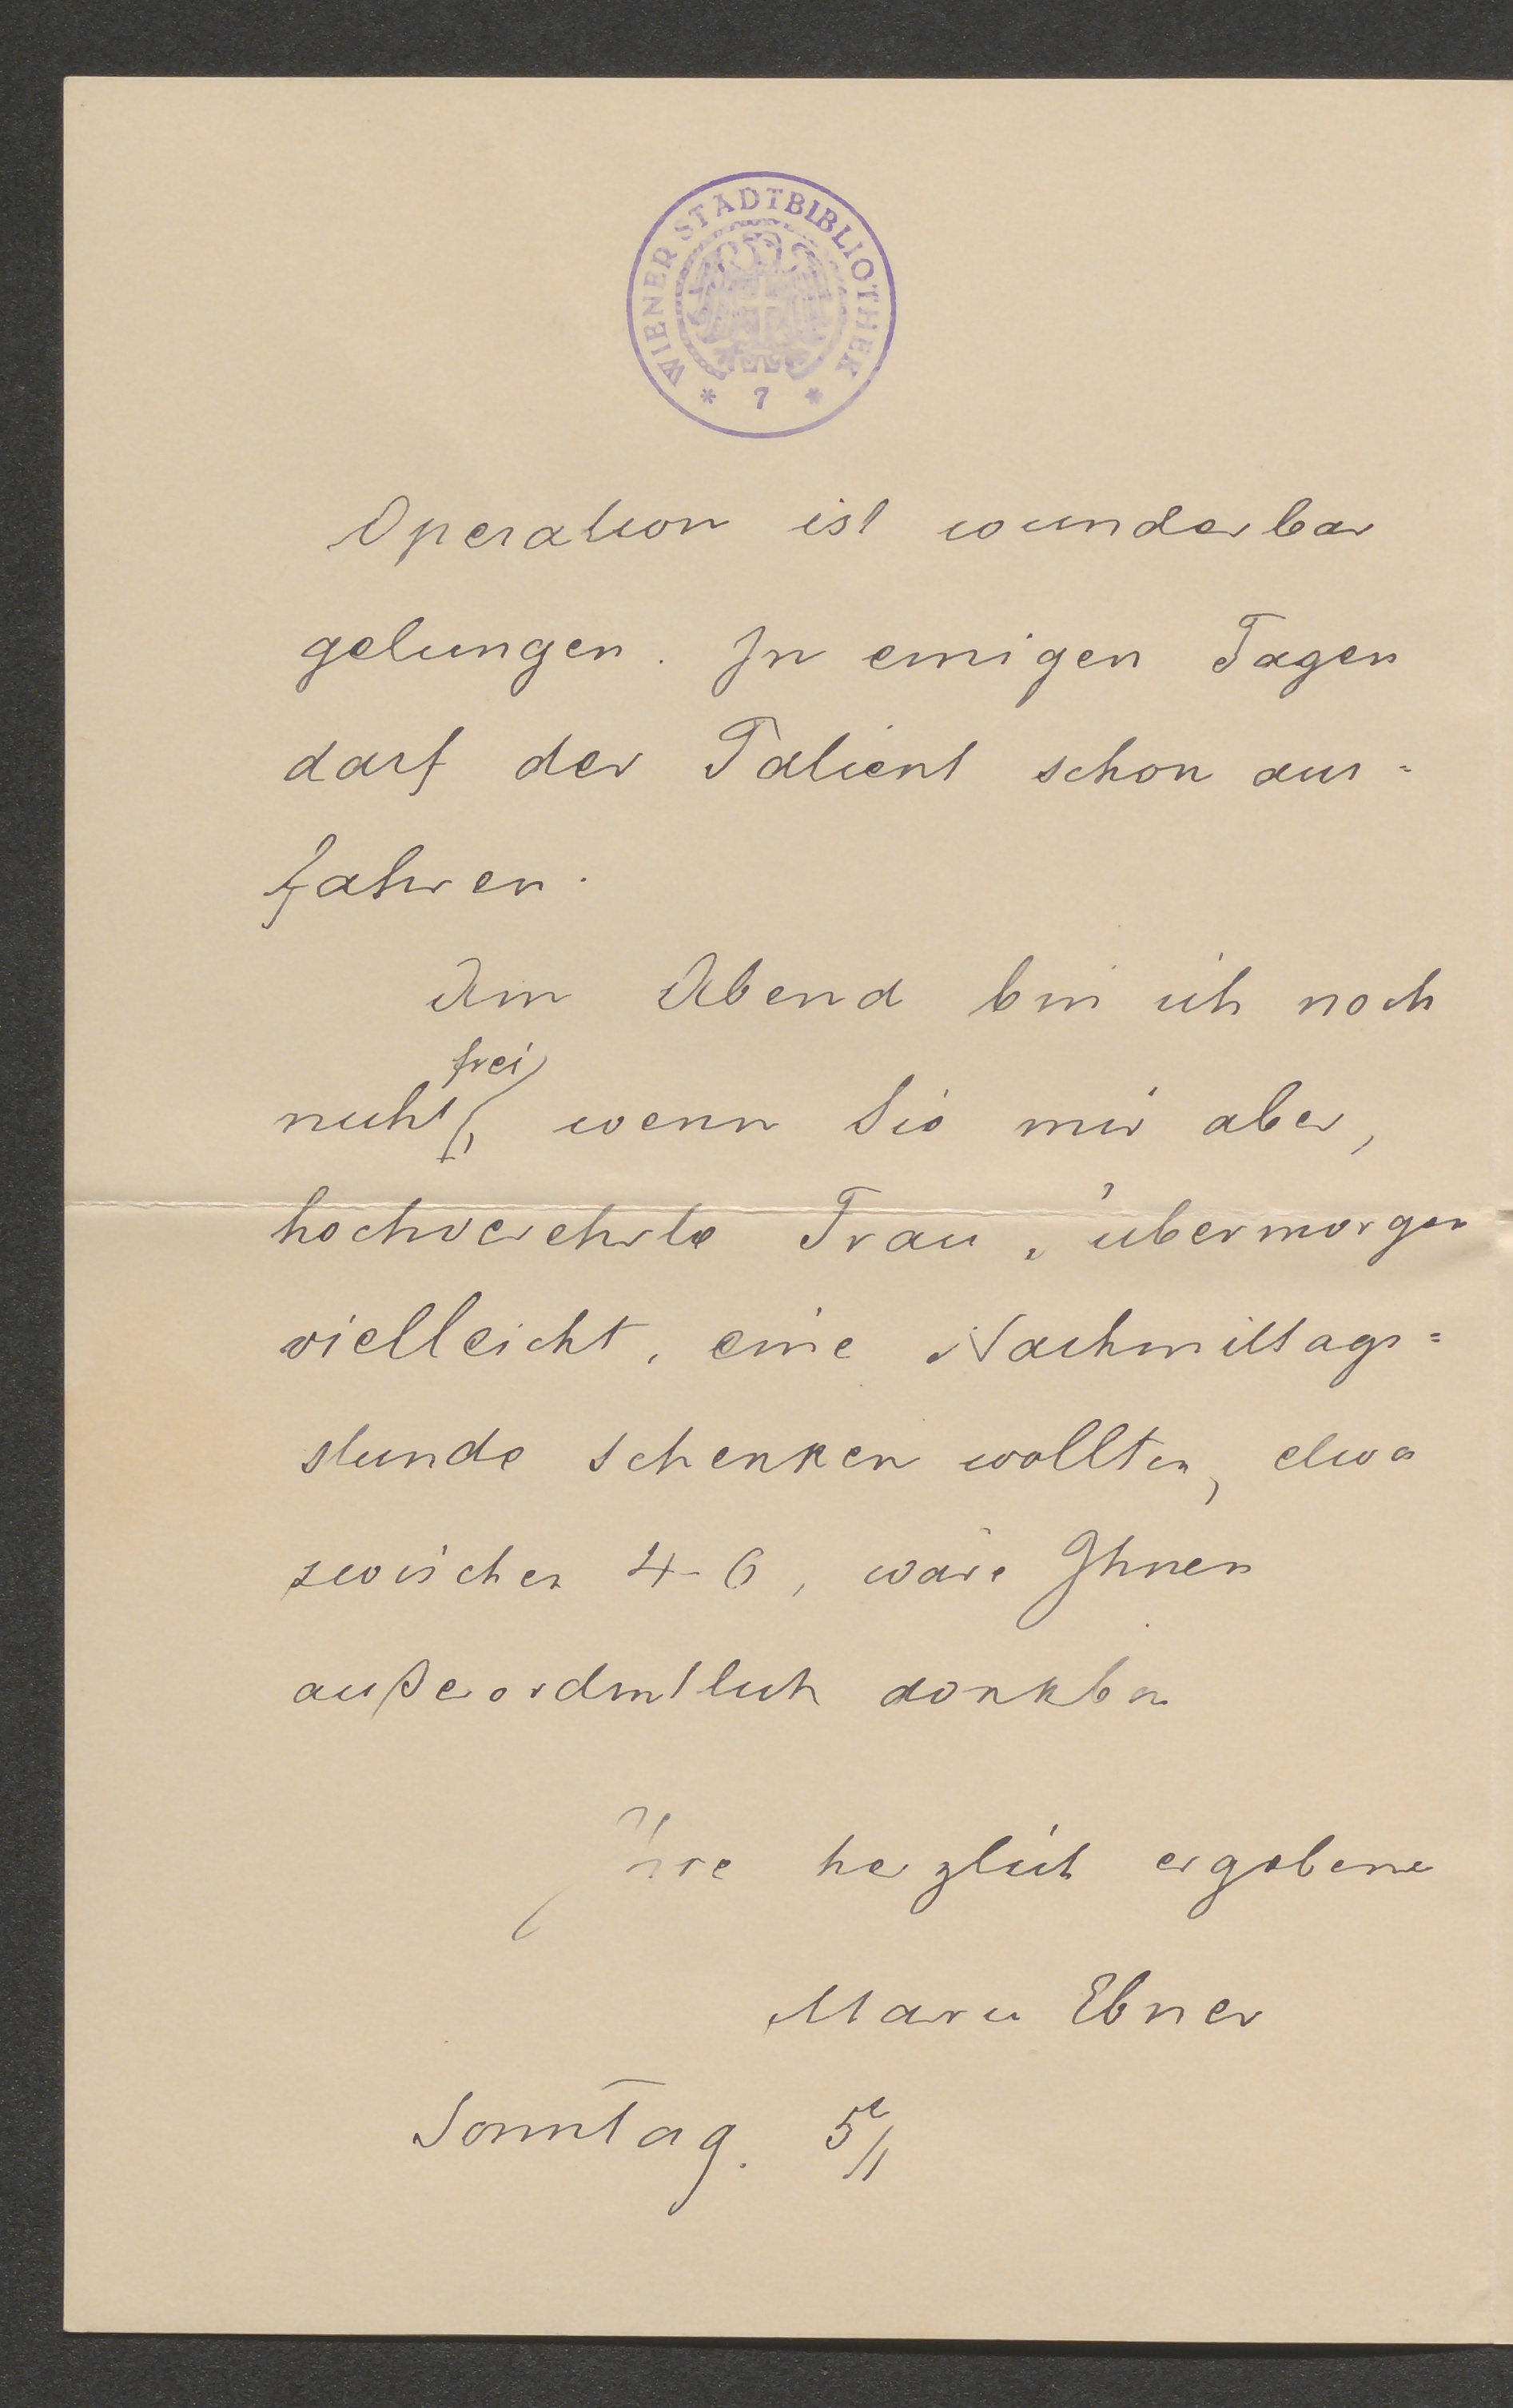 WIENER STADTBIBLIOTHEK
* 7 *
Operation ist wunderbar
gelungen. In einigen Tagen
darf der Patient schon aus=
fahren.
Am Abend bin ich noch
frei
nicht, wenn Sie mir aber,
hochverehrte Frau, übermorgen
vielleicht, eine Nachmittags=
stunde schenken wollten, etwa
zwischen 4-6, wäre Ihnen
außerordentlich dankbar
Ihre herzlich ergebene
Marie Ebner
Sonntag. 5t/1